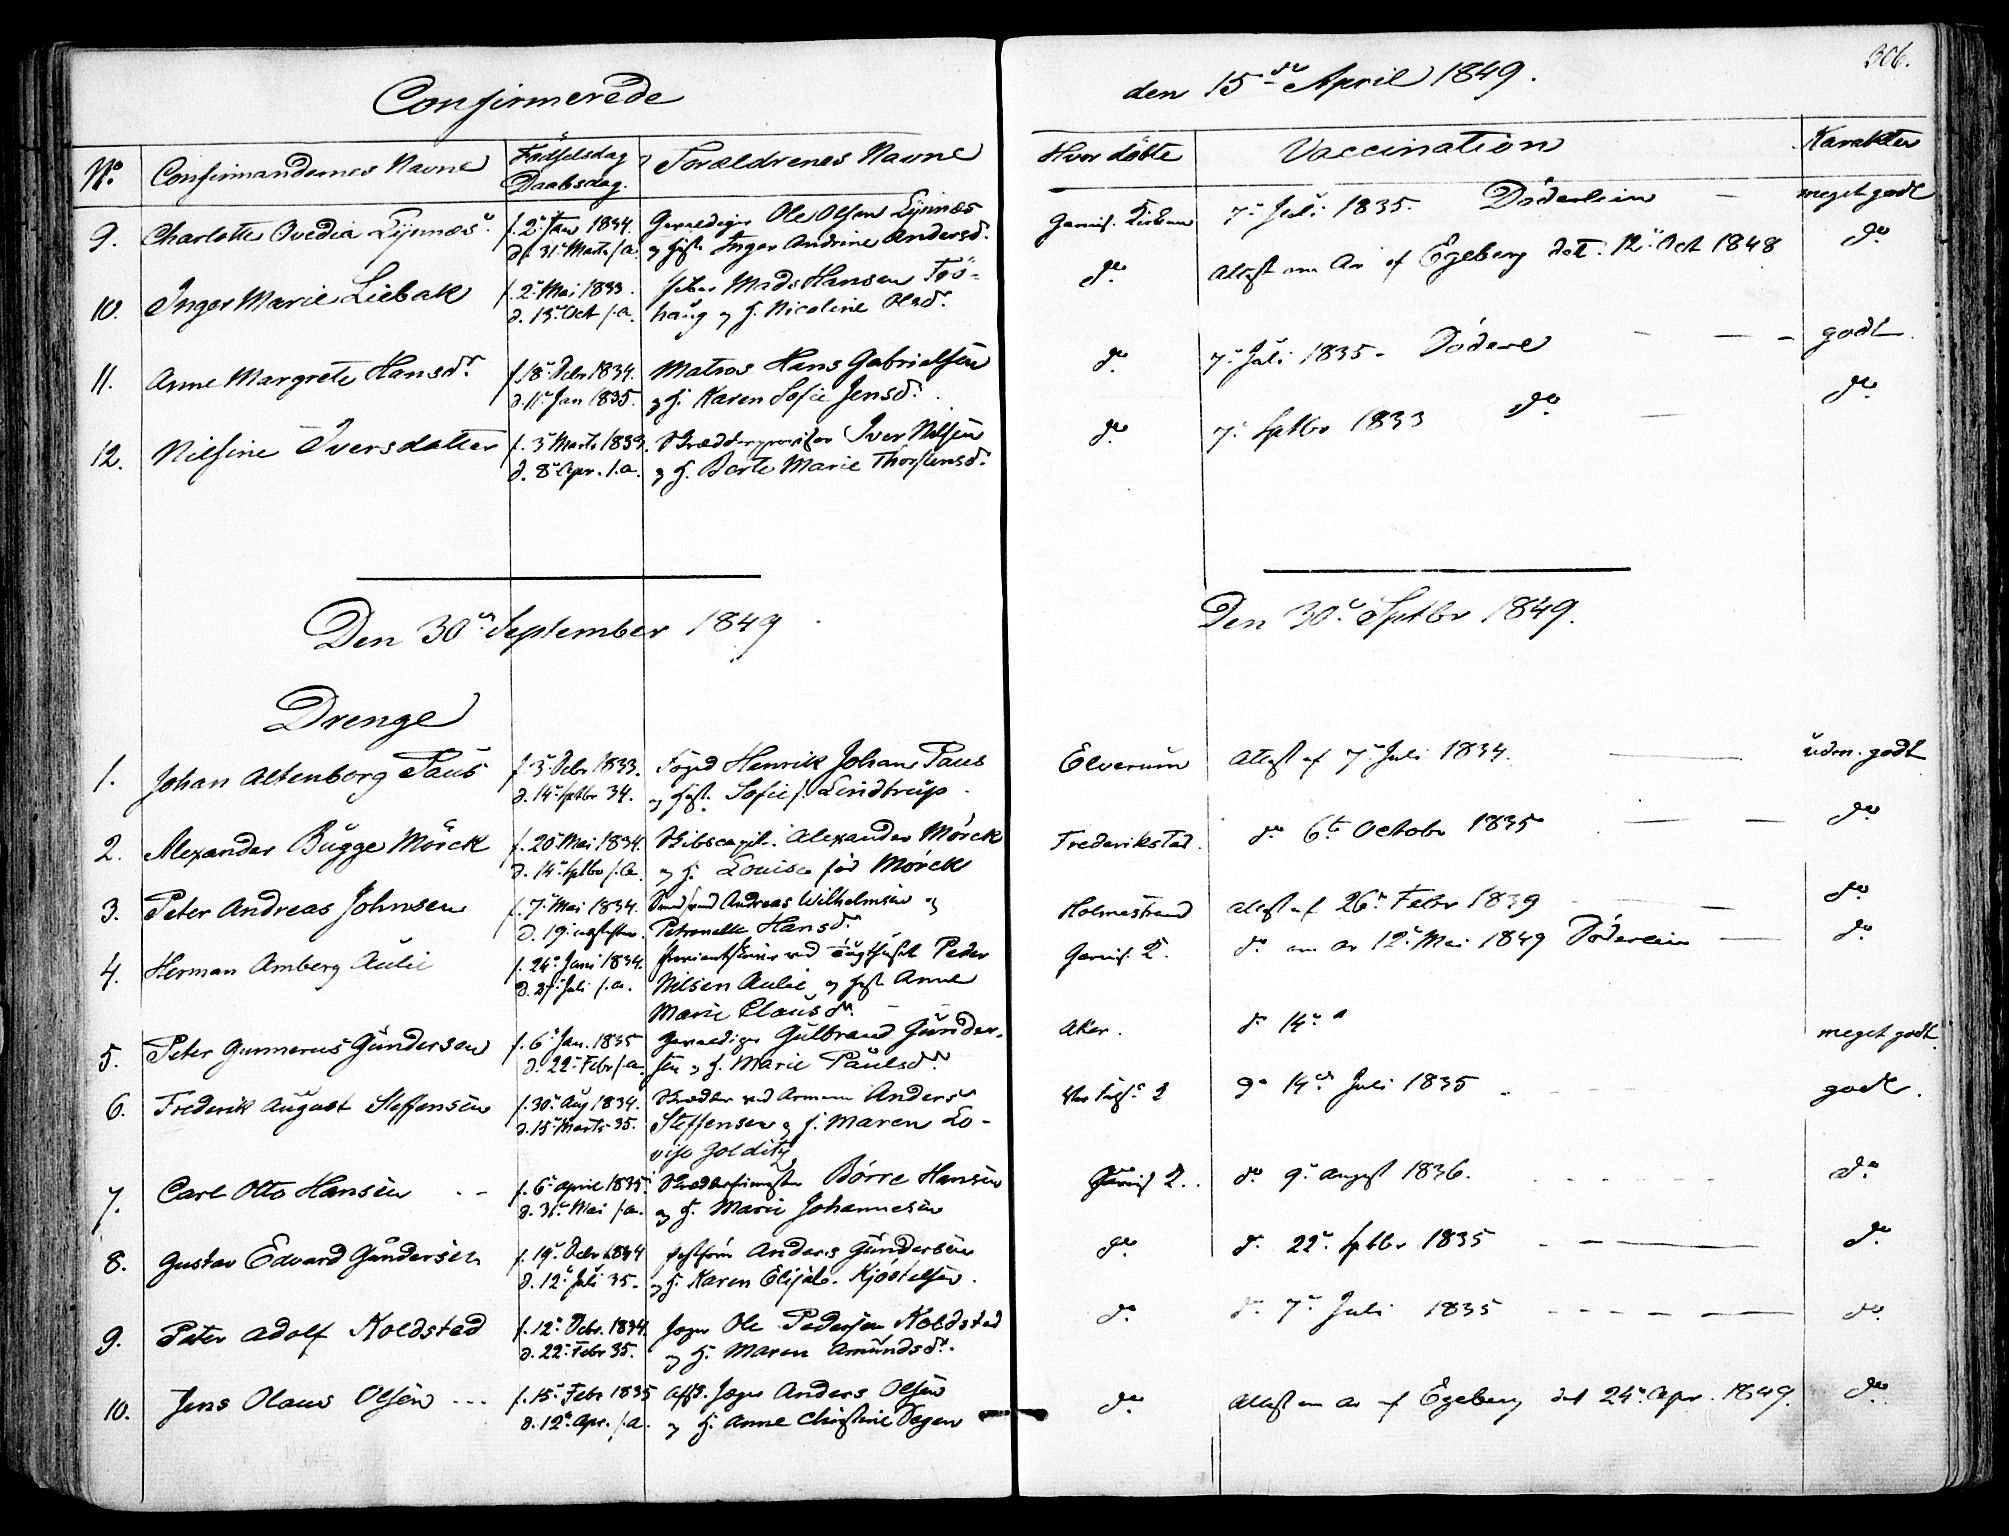 306.
Confirmerede den 15de April 1849.
No. Confirmandernes Navne Fødselsdag Daabsdag. Forældrenes Navne Hvor døbte Vaccination Karakter
9. Charlotte Ovedia Lynnæs f. 2 Jan 1834. Gevaldiger Ole Olsen Lynnæs Garnis. Kirken 7 Juli 1835. Döderlein — meget godt
d. 31 Marts s.a. og Hust. Inger Andrine Andersd.
10. Inger Marie Liebak f. 2 Mai 1833. Mads Hansen do Attest om Ar af Egeberg dat. 12 Oct 1848 do
d. 13 Oct s.a. haug og H. Nicoline Olsd.
11. Anne Margrete Hansdr. f. 18 Decbr 1834. Matros Hans Gabrielsen do 7 Juli 1835 - Döderl — godt
d. 11 Jan 1835. og H. Karen Sofie Jensd.
12. Nilsine Iversdatter f. 3 Marts 1833. Iver Nilsen do 7 Sptbr 1833 do — do
d. 8 Apr. s.a. og H. Berte Marie Thorstensd.
Den 30 September 1849 Den 30 Sptbr 1849.
Drenge
1. Johan Altenborg Paus f. 3 Decbr 1833. Foged Henrik Johan Paus Elverum Attest af 7 Juli 1834. — udm. godt
d. 14 Sptbr 34. og Hust. Sofie f. Lindtrup.
2. Alexander Bugge Mörck f. 20 Mai 1834. Skibscapit. Alexander Mörck Frederikstad. do 6te Octobr 1835 — do
d. 14 Sptbr s.a. og H. Louise föd Mörck
3. Peter Andreas Johnsen f. 7 Mai 1834. Andreas Wilhelmsen og Holmestrand Attest af 26 Febr 1839 — do
d. 19 Petronelle Hansd.
4. Herman Amberg Aulie f. 24 Juni 1834. ved Tugthuset Peder Garnis. K. do om Ar 12 Mai 1849 Döderlein — do
d. 27 Juli s.a. Nilsen Aulie og Hust Anne
Marie Clausdr.
5. Peter Gunnerus Gundersen f. 6 Jan. 1835 Gevaldiger Gulbrand Gunder- Aker. do 14 " meget godt.
d. 22 Febr s.a. sen og H. Marie Paulsdr.
6. Frederik August Steffensen f. 30 Aug 1834. Anders do 14 Juli 1835 godt.
d. 15 Marts 35. Steffensen og H. Maren Lo-
vise Golditz
7. Carl Otto Hansen - - f. 6 April 1835. Börre Hansen Garnis K. do 9 August 1836. do
d. 31 Mai s.a. og H. Marie Johannesen
8. Gustav Edvard Gundersen f. 19 Decbr 1834 Anders Gundersen do d. 22 Sptbr 1835 - - — do
d. 12 Juli 35. og H. Karen Elisab. Kjöstelsen.
9. Peter Adolf Koldstad f. 12 Decbr. 1834. Jæger Ole Pedersen Koldstad do d. 7 Juli 1835 - - - — do
d. 22 Febr 35. og H. Maren Amundsd.
10. Jens Olaus Olsen - - - f. 15 Febr 1835 Afsk. Jæger Anders Olsen do Attest om Ar af Egeberg dat 24 Apr. 1849. do
d. 12 Apr. s.a. og H. Anne Christine Dagen